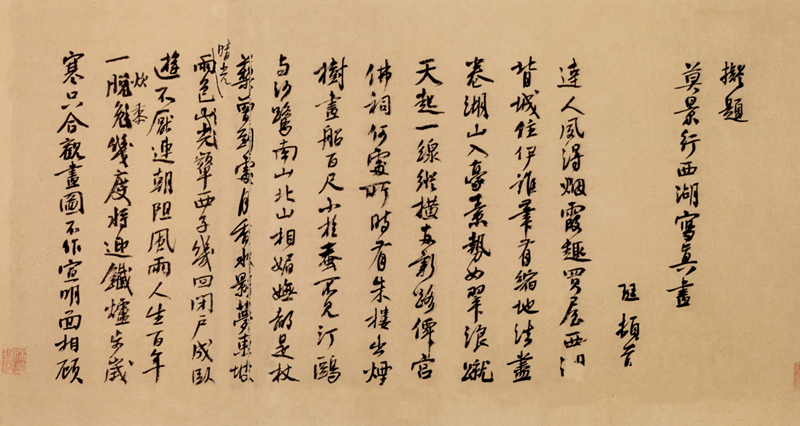 擬題
莫景行西湖寫真畫
達人風得烟霞趣買屋西湖
背城住伊誰筆有縮地法盡
卷湖山入豪素勢如翠浪蹴
天起一線縱橫老彩路僊宮
佛祠何處所時有朱樓出煙
樹畫船百尺小於蠢不見汀鷗
与沙鷺南山北山相媚嫵都是杖
藜曾到處月香水影夢東坡
雨色山光顰西子幾回閉戶成臥
晴光
遊不厭連朝阻風雨人生百年
一脫兔幾度將迎鐵爐步歲
炊黍
寒只合觀畫圖不作宣明面相顧